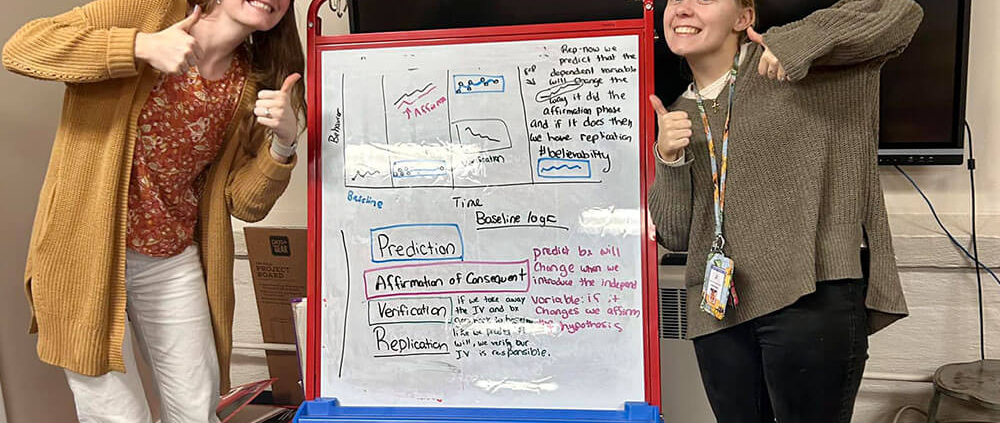 Behavior
Affirm
verification
Baseline
Time
Rep-now we
predict that the
dependent variable
will change the
way it did the
affirmation phase
and if it does then
we have replication
#believability
Baseline logic
Prediction
Affirmation of Consequent
Verification
Replication
if we take away
the IV and bx
like we
will, we verify our
IV is responsible.
predict bx will
change when we
introduce the independ
variable: if it
changes we affirm
the hypothesis
PROJECT
BOARD